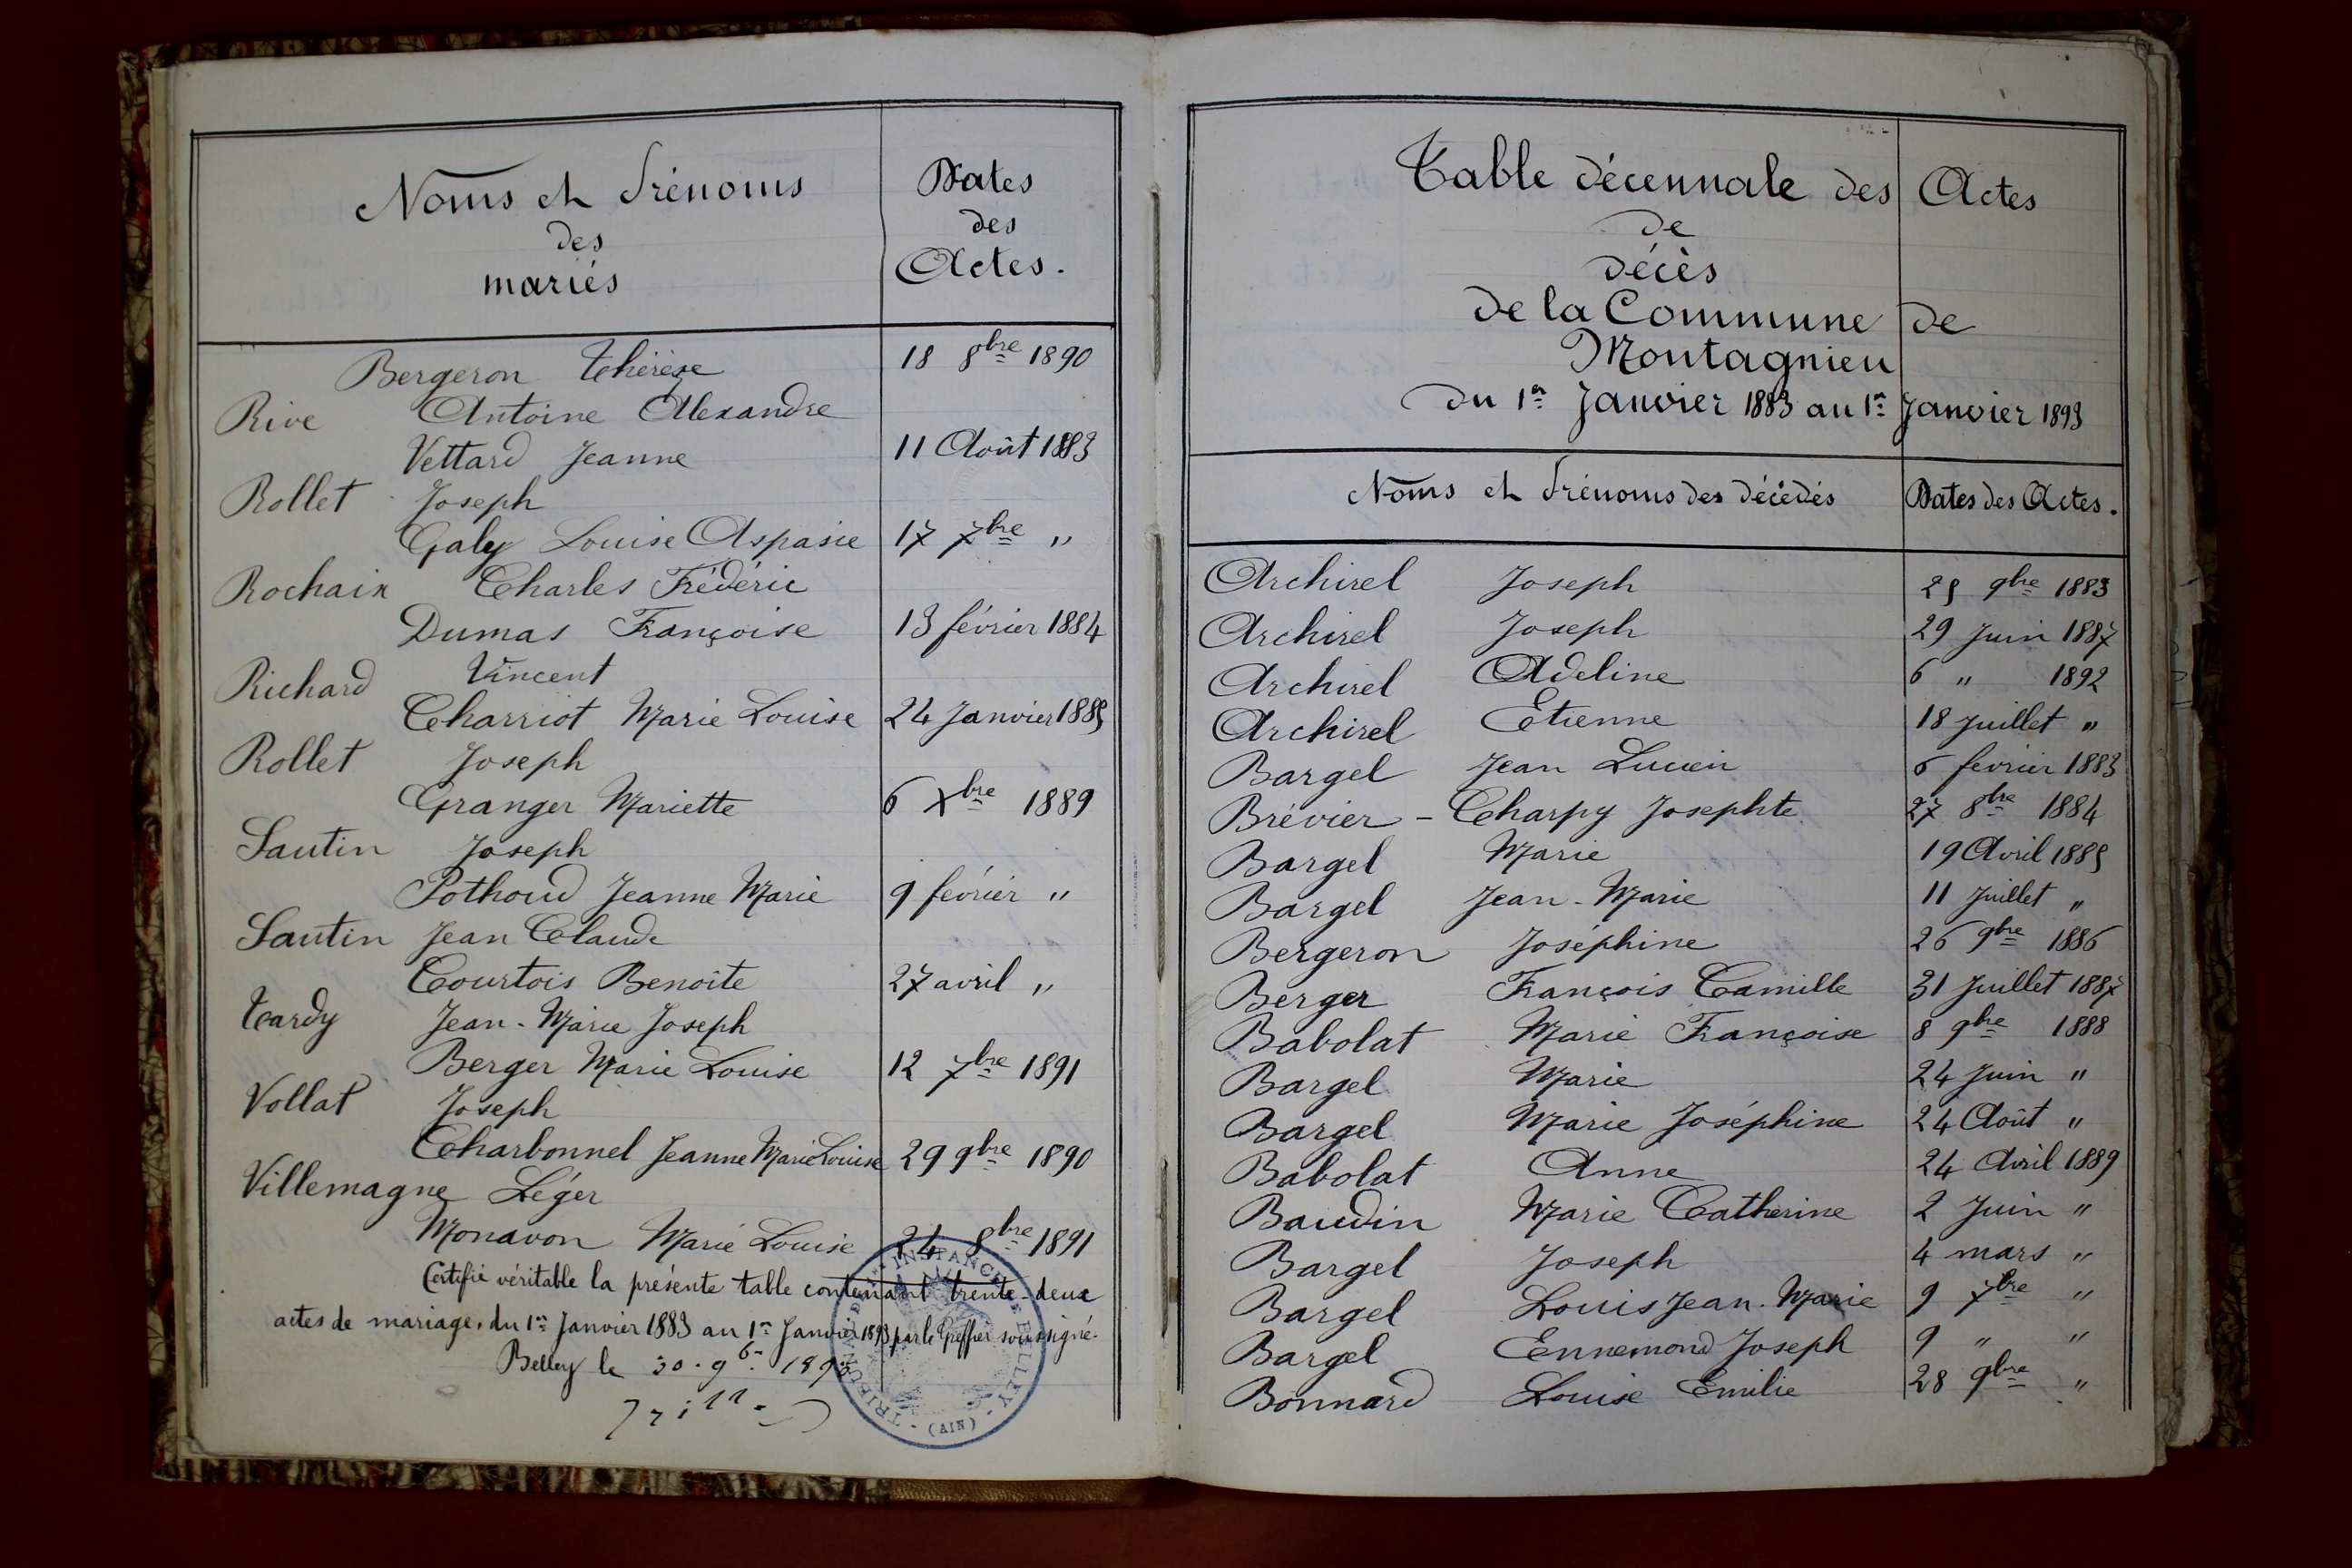 Noms et Prénoms
des
mariés
Dates
des
Actes.
Bergeron Thérèse 18 8bre 1890
Rive Antoine Alexandre
Vettard Jeanne 11 Août 1883
Rollet Joseph
Galy Louise Aspasie 17 7bre "
Rochaix Charles Frédéric
Dumas Françoise 13 février 1884
Richard Vincent
Charriot Marie Louise 24 Janvier 1885
Rollet Joseph
Granger Mariette 6 Xbre 1889
Sautin Joseph
Pothoud Jeanne Marie 9 février "
Sautin Jean Claude
Courtois Benoîte 27 avril "
Tardy Jean-Marie Joseph
Berger Marie Louise 12 7bre 1891
Vollat Joseph
Charbonnel Jeanne Marie Louise 29 9bre 1890
Villemagne Léger
Monavon Marie Louise 24 8bre 1891
Certifié véritable la présente table contenant trente-deux
actes de mariage, du 1er Janvier 1883 au 1er Janvier 1893 par le Greffier soussigné.
Belley le 30. 9b. 1893
TRIBUNAL DE 1ère INSTANCE DE BELLEY - (AIN) -
Table décennale des Actes
de
décès
de la Commune de
Montagnieu
du 1er Janvier 1883 au 1er Janvier 1893
Noms et Prénoms des décédés Dates des Actes.
Archirel Joseph 25 9bre 1883
Archirel Joseph 29 Juin 1887
Archirel Adeline 6 " 1892
Archirel Etienne 18 Juillet "
Bargel Jean Lucien 6 fevrier 1883
Brévier - Charpy Josephte 27 8bre 1884
Bargel Marie 19 Avril 1885
Bargel Jean-Marie 11 Juillet "
Bergeron Joséphine 26 9bre 1886
Berger François Camille 31 Juillet 1887
Babolat Marie Françoise 8 9bre 1888
Bargel Marie 24 Juin "
Bargel Marie Joséphine 24 Août "
Babolat Anne 24 Avril 1889
Baudin Marie Catherine 2 Juin "
Bargel Joseph 4 mars "
Bargel Louis Jean-Marie 9 7bre "
Bargel Ennemond Joseph 9 " "
Bonnard Louise Emilie 28 9bre "